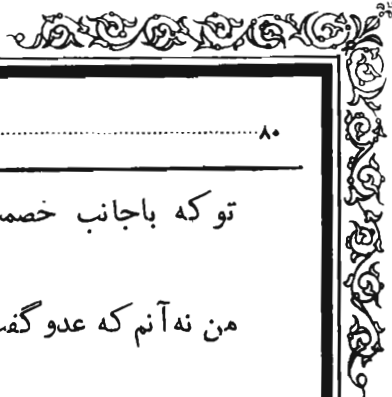 ۸۰
تو که باجانب خصمـ
من نه آنم که عدو گفـ